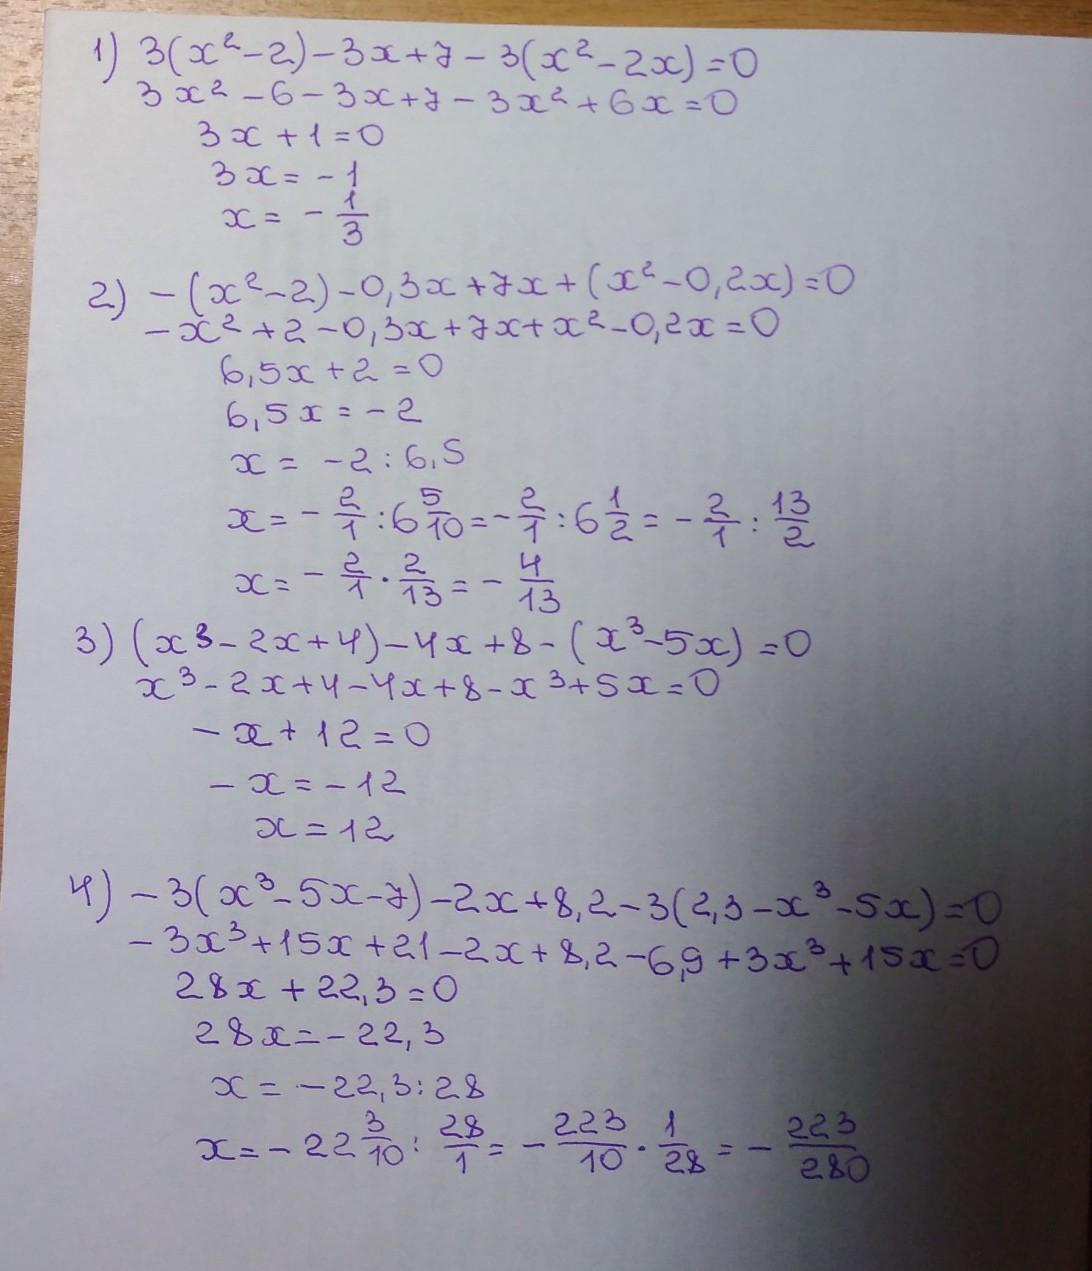 1) 3(x² - 2) - 3x + 7 - 3(x² - 2x) = 0
3x² - 6 - 3x + 7 - 3x² + 6x = 0
3x + 1 = 0
3x = - 1
x = - 1/3
2) - (x² - 2) - 0,3x + 7x + (x² - 0,2x) = 0
- x² + 2 - 0,3x + 7x + x² - 0,2x = 0
6,5x + 2 = 0
6,5x = - 2
x = - 2 : 6,5
x = - 2/1 : 6 5/10 = - 2/1 : 6 1/2 = - 2/1 : 13/2
x = - 2/1 · 2/13 = - 4/13
3) (x³ - 2x + 4) - 4x + 8 - (x³ - 5x) = 0
x³ - 2x + 4 - 4x + 8 - x³ + 5x = 0
- x + 12 = 0
- x = - 12
x = 12
4) - 3(x³ - 5x - 7) - 2x + 8,2 - 3(2,3 - x³ - 5x) = 0
- 3x³ + 15x + 21 - 2x + 8,2 - 6,9 + 3x³ + 15x = 0
28x + 22,3 = 0
28x = - 22,3
x = - 22,3 : 28
x = - 22 3/10 : 28/1 = - 223/10 · 1/28 = - 223/280